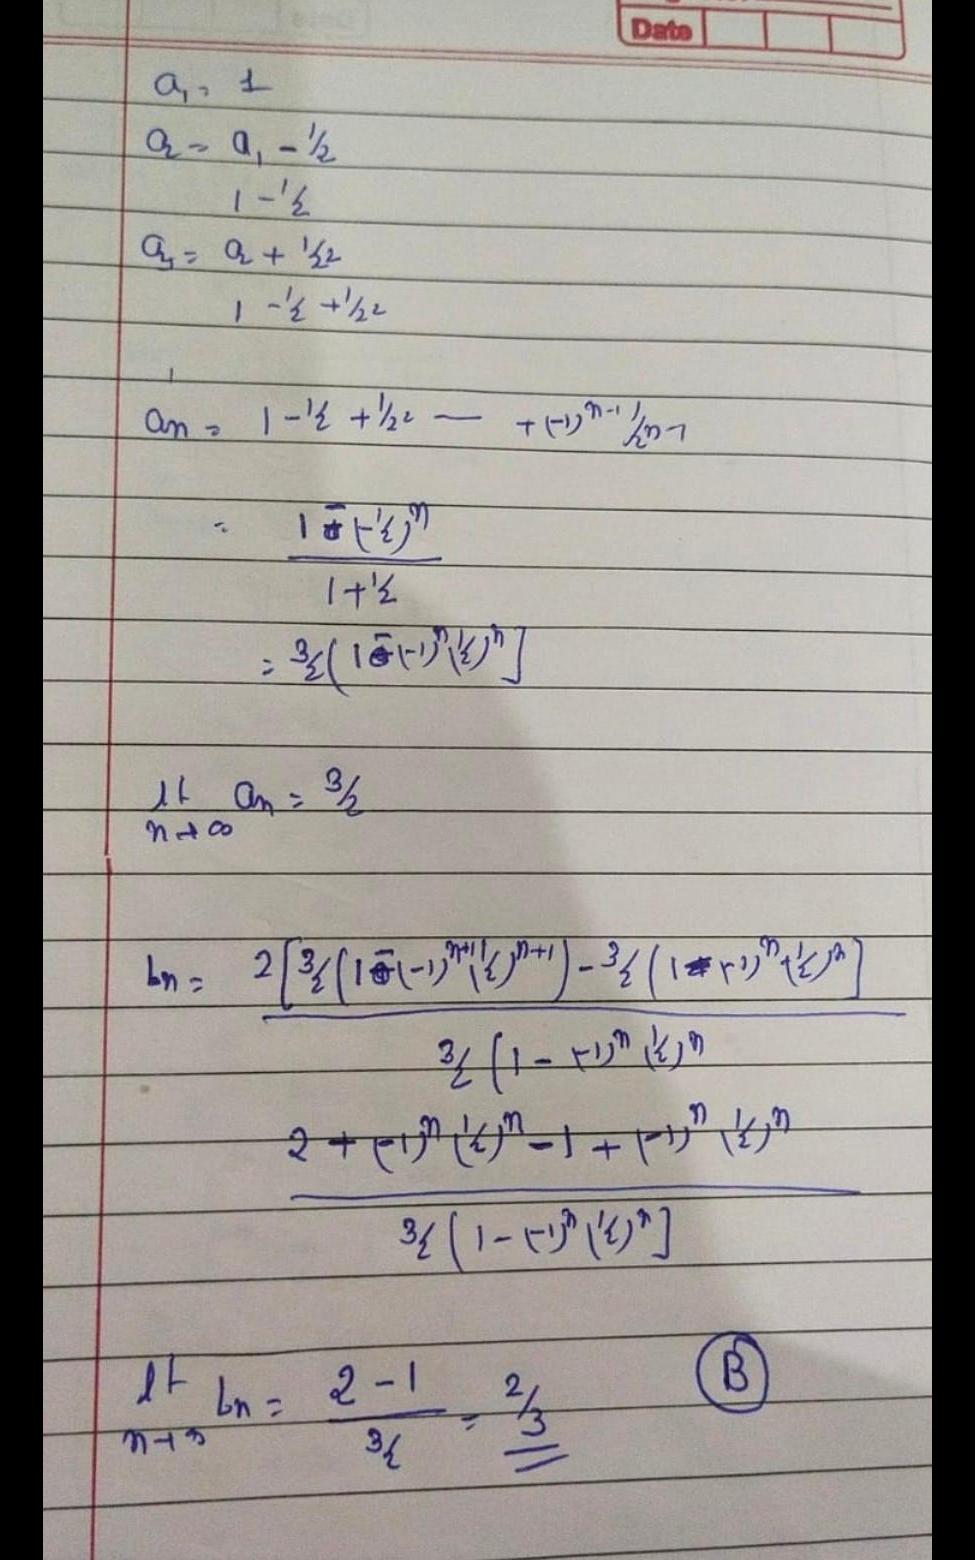 Date
a₁ = 1
a₂ = a₁ - 1/2
1 - 1/2
a₃ = a₂ + 1/2²
1 - 1/2 + 1/2²
an = 1 - 1/2 + 1/2² — + (-1)ⁿ⁻¹ 1/2ⁿ⁻¹
= 1 - (-1/2)ⁿ
1 + 1/2
= 3/2 ( 1 - (-1)ⁿ (1/2)ⁿ ]
lt an = 3/2
n→∞
bn = 2 [ 3/2 ( 1 - (-1)ⁿ⁺¹ (1/2)ⁿ⁺¹ ) - 3/2 ( 1 - (-1)ⁿ (1/2)ⁿ ]
3/2 ( 1 - (-1)ⁿ (1/2)ⁿ
2 + (-1)ⁿ (1/2)ⁿ - 1 + (-1)ⁿ (1/2)ⁿ
3/2 ( 1 - (-1)ⁿ (1/2)ⁿ ]
lt bn = 2 - 1 = 2/3 B
n→∞ 3/2